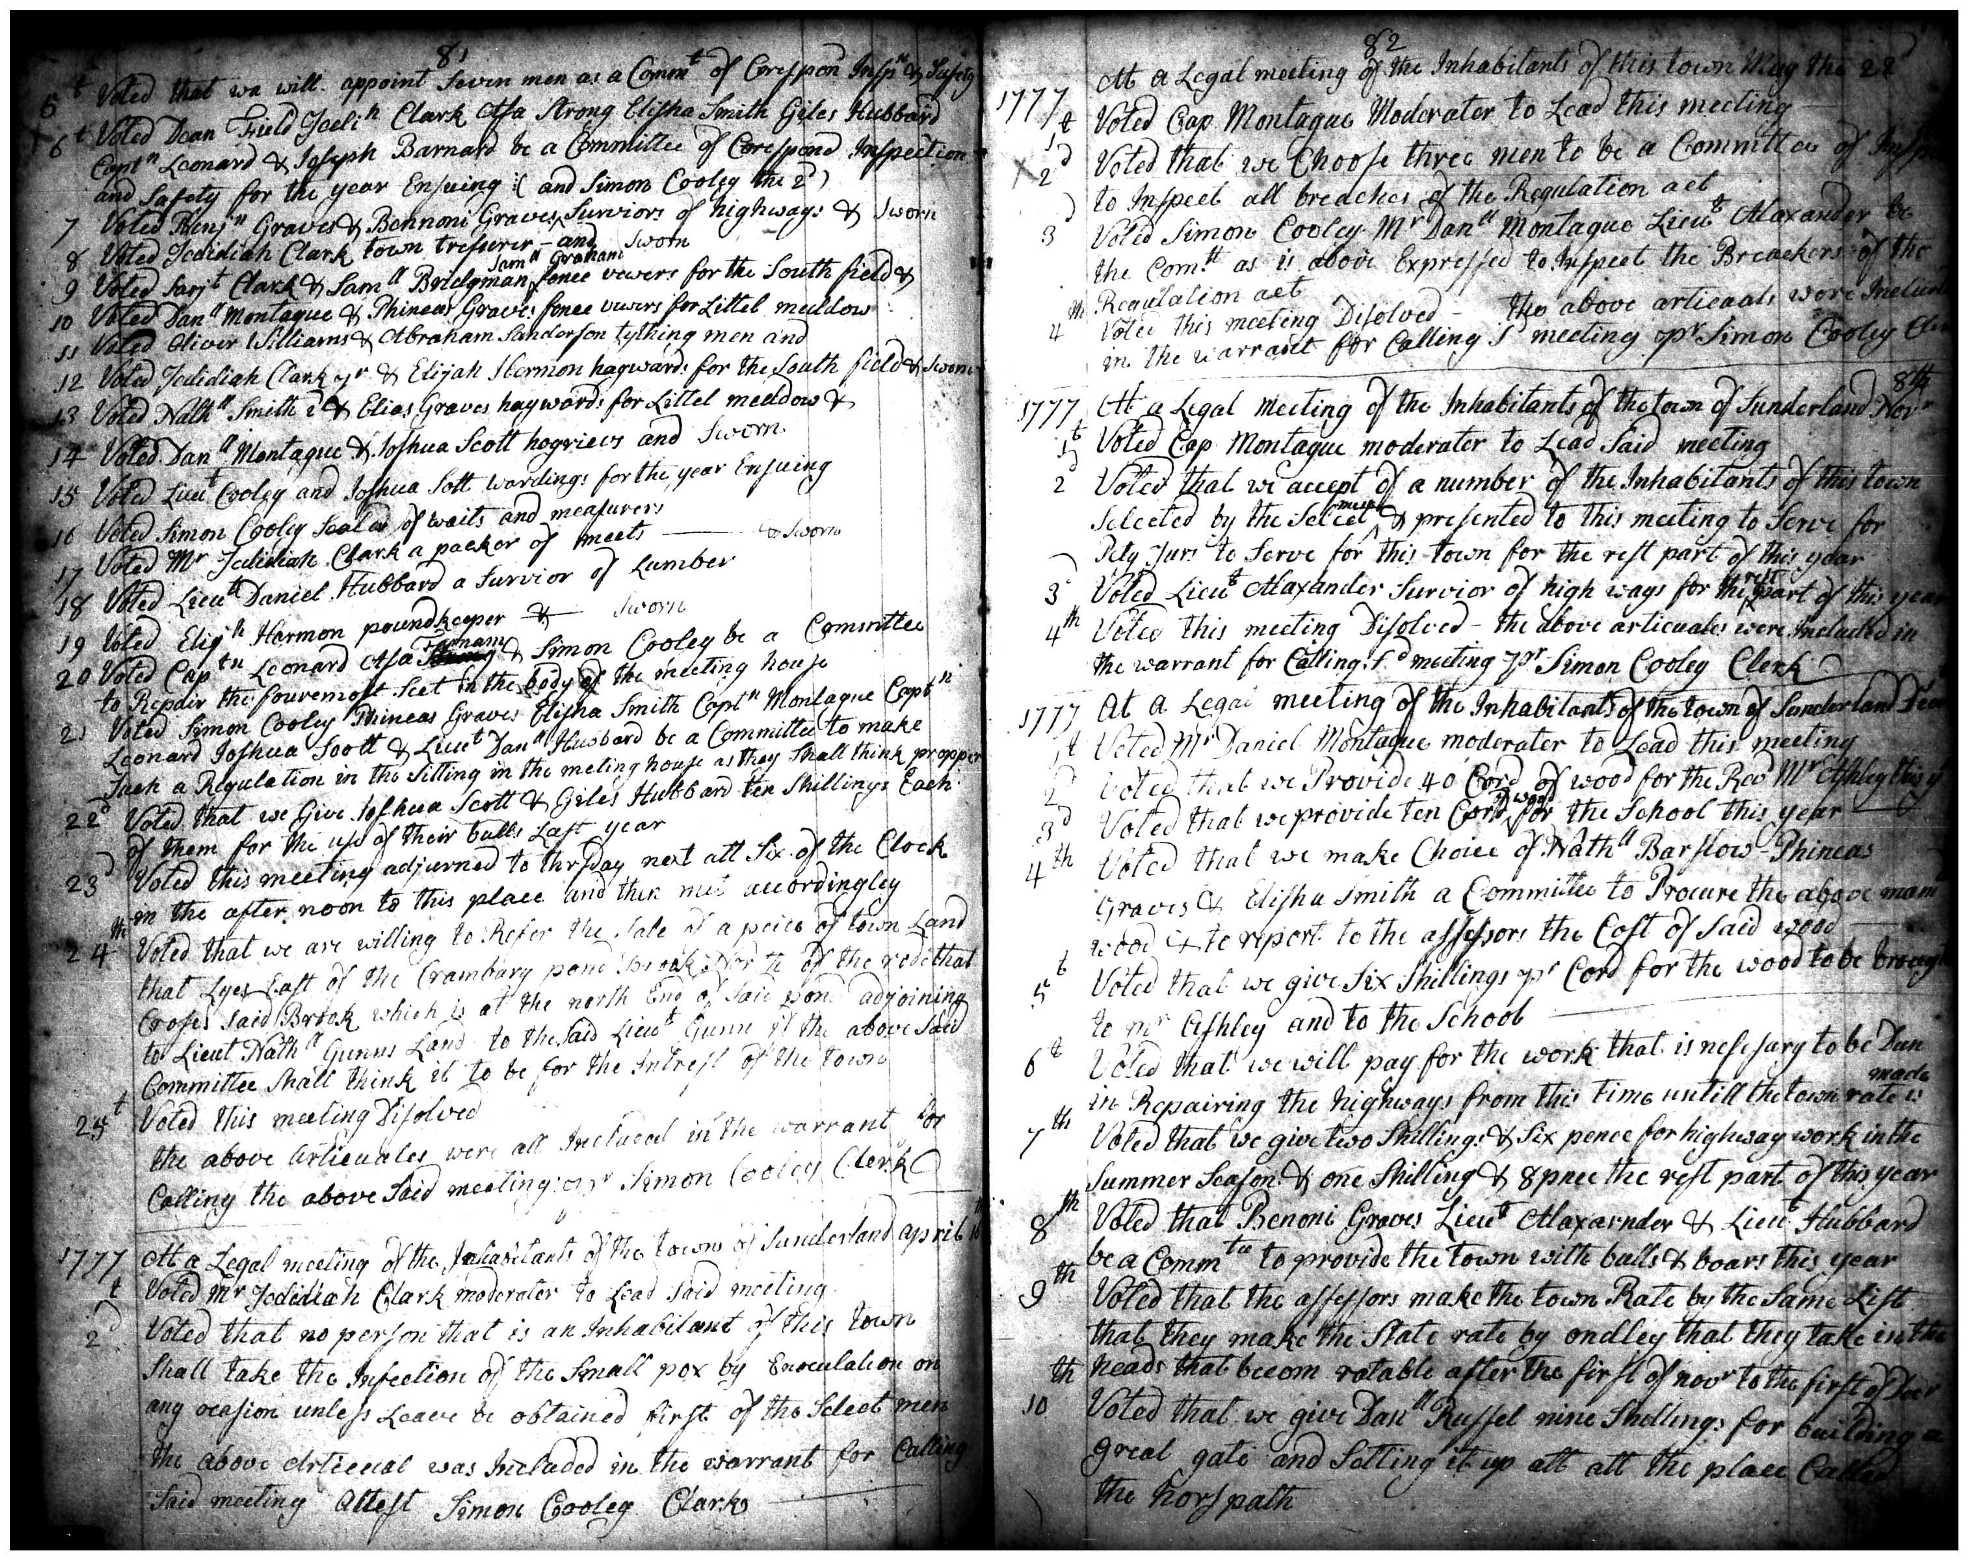 81
5t Voted that we will appoint Seven men as a Commt of Corespon Inspn & Safety
6t Voted Dean Field Jedih Clark Asa Strong Elisha Smith Giles Hubbard
Captn Leonard & Joseph Barnard be a Committee of Corespond Inspection
and Safety for the year Ensuing (and Simon Cooley the 2d)
7 Voted Benjn Graves & Bennoni Graves Surviors of highways & Sworn
8 Voted Jedidiah Clark town tresurer - and Sworn
Samll Graham
9 Voted Sarjt Clark & Samll Bridgman fence vewers for the South field &
10 Voted Danll Montague & Phineas Graves fence vewers for Littel meddow
11 Voted Oliver Williams & Abraham Sanderson tything men and
12 Voted Jedidiah Clark Jr & Elijah Hermon haywards for the South field & Sworn
13 Voted Nathll Smith 2d & Elias Graves haywords for Littel meddow &
14 Voted Danll Montague & Joshua Scott hogrievs and Sworn
15 Voted Lieut Cooley and Joshua Sott wardings for the year Ensuing
16 Voted Simon Cooley Sealer of waits and measurers
17 Voted Mr Jedidiah Clark a packer of meets & Sworn
18 Voted Lieut Daniel Hubbard a Survior of Lumber
19 Voted Elijh Harmon poundkeeper & Sworn
20 Voted Captn Leonard Asa & Simon Cooley be a Committee
to Repair the fouremost Seet in the body of the meeting house
21 Voted Simon Cooley Phineas Graves Elisha Smith Captn Montague Captn
Leonard Joshua Scott & Lieut Danll Hubbard be a Committee to make
Such a Regulation in the Sitting in the meting house as they Shall think propper
22d Voted that we Give Joshua Scott & Giles Hubbard ten Shillings Each
of them for the use of their bulls Last year
23d Voted this meeting adjurned to thrsday next att Six of the Clock
in the after noon to this place and then met accordingley
24th Voted that we are willing to Refer the Sale of a peice of town Land
that Lyes East of the Crambary pond Brook North of the rode that
Croses Said Brook which is at the north End of Said pond adjoining
to Lieut Nathll Gunns Land to the Said Lieut Gunn if the above Said
Committee Shall think it to be for the Intrest of the town
25t Voted this meeting Disolved
the above articuales were all Included in the warrant for
Calling the above Said meeting pr Simon Cooley Clerk
1777 At a Legal meeting of the Inhabitants of the town of Sunderland april
1t Voted Mr Jedidiah Clark moderater to Lead Said meeting
2d Voted that no person that is an Inhabitant of this town
Shall take the Infection of the Small pox by Enoculation on
any ocasion unless Leave be obtained first of the Select men
the above Articual was Included in the warrant for Calling
Said meeting Attest Simon Cooley Clark
82
1777 At a Legal meeting of the Inhabitants of this town May the 22
1t Voted Cap Montague Moderater to Lead this meeting
2d Voted that we Choose three men to be a Committee of
to Inspect all breaches of the Regulation act
3d Voted Simon Cooley Mr Danll Montague Lieut Alaxander be
the Comtt as is above Expressed to Inspect the Breackers of the
Regulation act
4th Voted this meeting Disolved - the above articuals were
in the warrant for Calling Sd meeting pr Simon Cooley
1777 At a Legal Meeting of the Inhabitants of the town of Sunderland Novr 8th
1t Voted Cap Montague moderater to Lead Said meeting
2d Voted that we accept of a number of the Inhabitants of this town
Selected by the Select men & presented to this meeting to Serve for
Pety Jurs to Serve for this town for the rest part of this year
3d Voted Lieut Alaxander Survior of high ways for the rest part of this year
4th Voted this meeting Disolved - the above articuales were Included in
the warrant for Calling Sd meeting pr Simon Cooley Clerk
1777 At a Legal meeting of the Inhabitants of the town of Sunderland
1t Voted Mr Daniel Montague moderater to Lead this meeting
2d Voted that we Provide 40 Cord of wood for the Revd Mr Ashley this
3d Voted that we provide ten Cord of wood for the School this year
4th Voted that we make Choice of Nathll Barstow Phineas
Graves & Elisha Smith a Committee to Procure the above
wood & to report to the assessors the Cost of Said wood
5t Voted that we give Six Shillings pr Cord for the wood to be
to mr Ashley and to the School
6t Voted that we will pay for the work that is nesesary to be Dun
in Repairing the highways from this time untill the town rate is made
7th Voted that we give two Shillings & Six pence for highway work in the
Summer Season & one Shilling & 8 pnce the rest part of this year
8th Voted that Benoni Graves Lieut Alaxarnder & Lieut Hubbard
be a Commtee to provide the town with bulls & boars this year
9th Voted that the assessors make the town Rate by the Same List
that they make the State rate by ondley that they take in the
heads that becom ratable after the first of novr to the first of Decr
10th Voted that we give Danll Russel nine Shillings for building a
great gate and Setting it up att att the place Called
the horspath